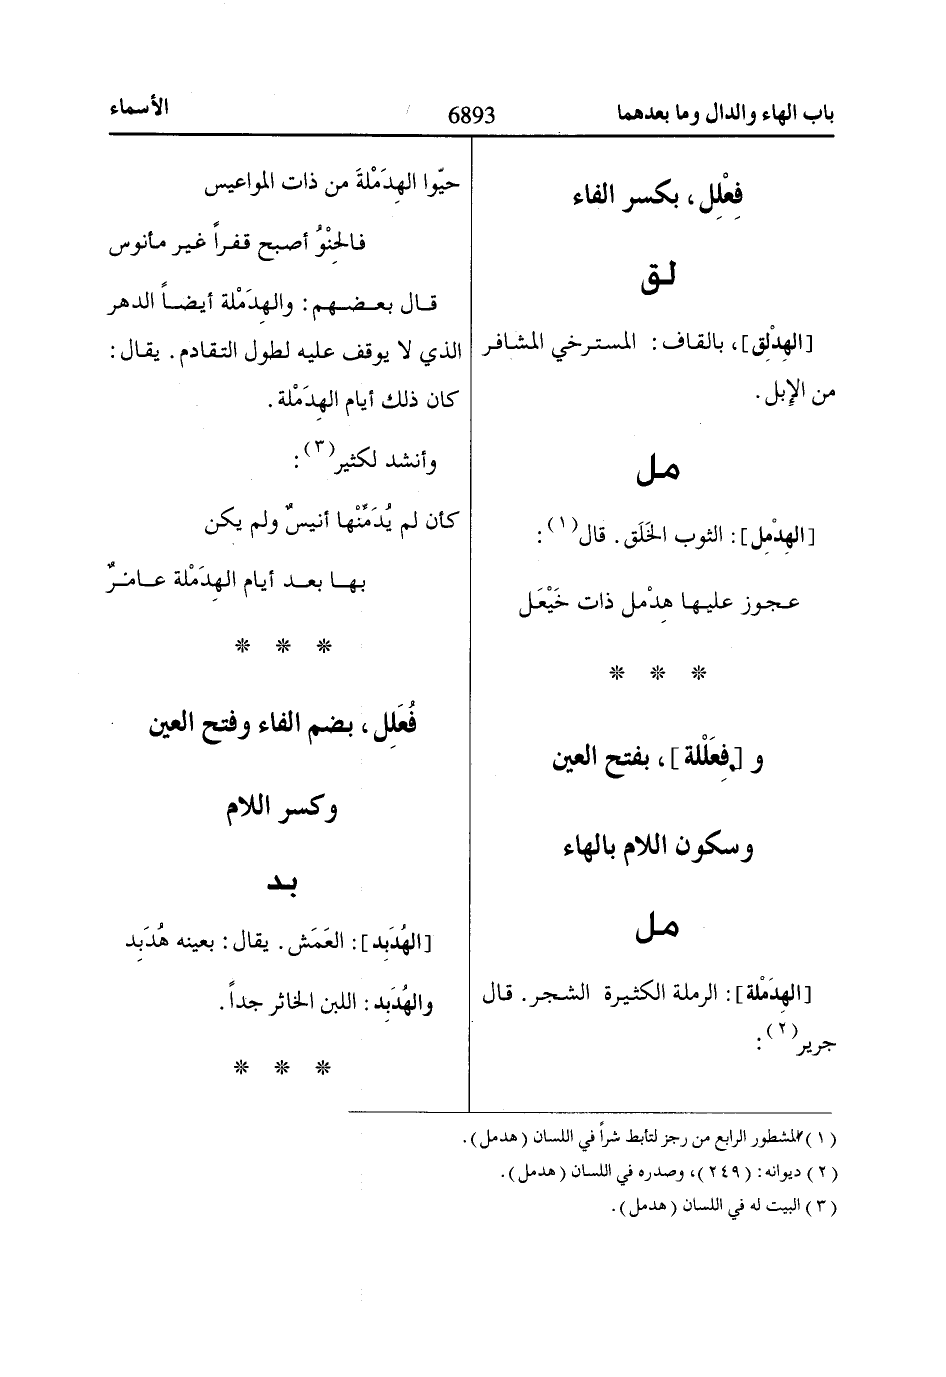 باب الهاء والدال وما بعدهما
6893
الأسماء
فِعْلِل، بكسر الفاء
لق
[الهِدْلِق]، بالقاف: المسترخي المشافر
من الإبل.
مل
[الهِدْمِل]: الثوب الخَلَق. قال(١):
عجوز عليها هِدْمل ذات خَيْعَل
❊ ❊ ❊
و [فِعَلْلة]، بفتح العين
وسكون اللام بالهاء
مل
[الهِدَمْلة]: الرملة الكثيرة الشجر. قال
جرير(٢):
حيّوا الهِدَمْلةَ من ذات المواعيس
فالحِنْوُ أصبح قفراً غير مأنوس
قال بعضهم: والهِدَمْلة أيضاً الدهر
الذي لا يوقف عليه لطول التقادم. يقال:
كان ذلك أيام الهِدَمْلة.
وأنشد لكثير(٣):
كأن لم يُدَمِّنْها أنيسٌ ولم يكن
بها بعد أيام الهِدَمْلة عامرٌ
❊ ❊ ❊
فُعَلِل، بضم الفاء وفتح العين
وكسر اللام
بد
[الهُدَبِد]: العَمَش. يقال: بعينه هُدَبِد
والهُدَبِد: اللبن الخاثر جداً.
❊ ❊ ❊
(١) المشطور الرابع من رجز لتأبط شراً في اللسان (هدمل).
(٢) ديوانه: (٢٤٩)، وصدره في اللسان (هدمل).
(٣) البيت له في اللسان (هدمل).